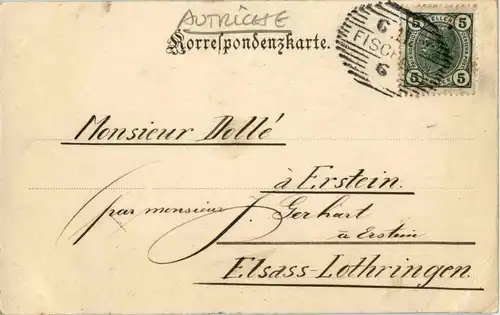 AUTRICHE
Korrespondenzkarte.
6
FISCH
6
HELLER
5 5
5 5
Monsieur Dollé
à Erstein.
par monsieur J. Gerhart
à Erstein
Elsass-Lothringen.